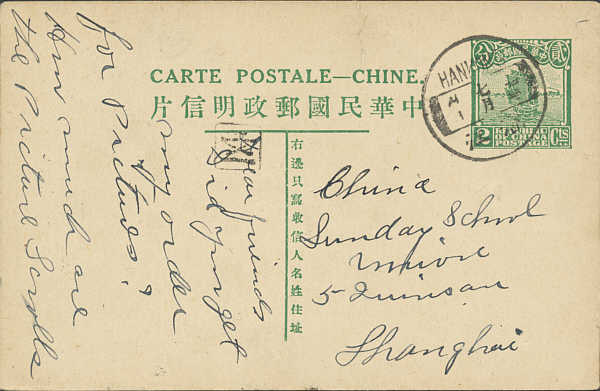 CARTE POSTALE—CHINE.
片信明政郵國民華中
右邊只寫收信人名姓住址
HAN
七月
分 貳
2 Cts
POSTAGE
China
Sunday School
Union
5 Quinsan
Shanghai
Dear friends
Did you get
my order
for Pictures?
How much are
the Picture Scrolls